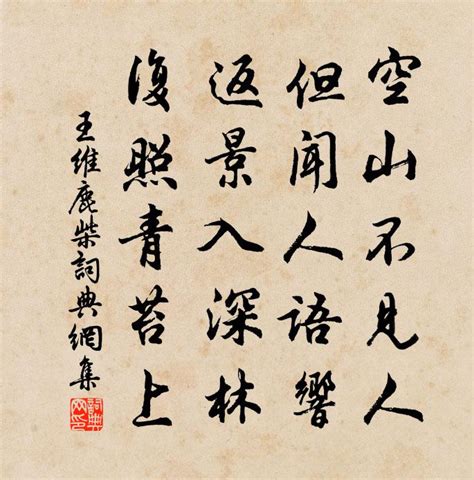 空山不見人
但聞人語響
返景入深林
復照青苔上
王維鹿柴詞典網集
詞典
网